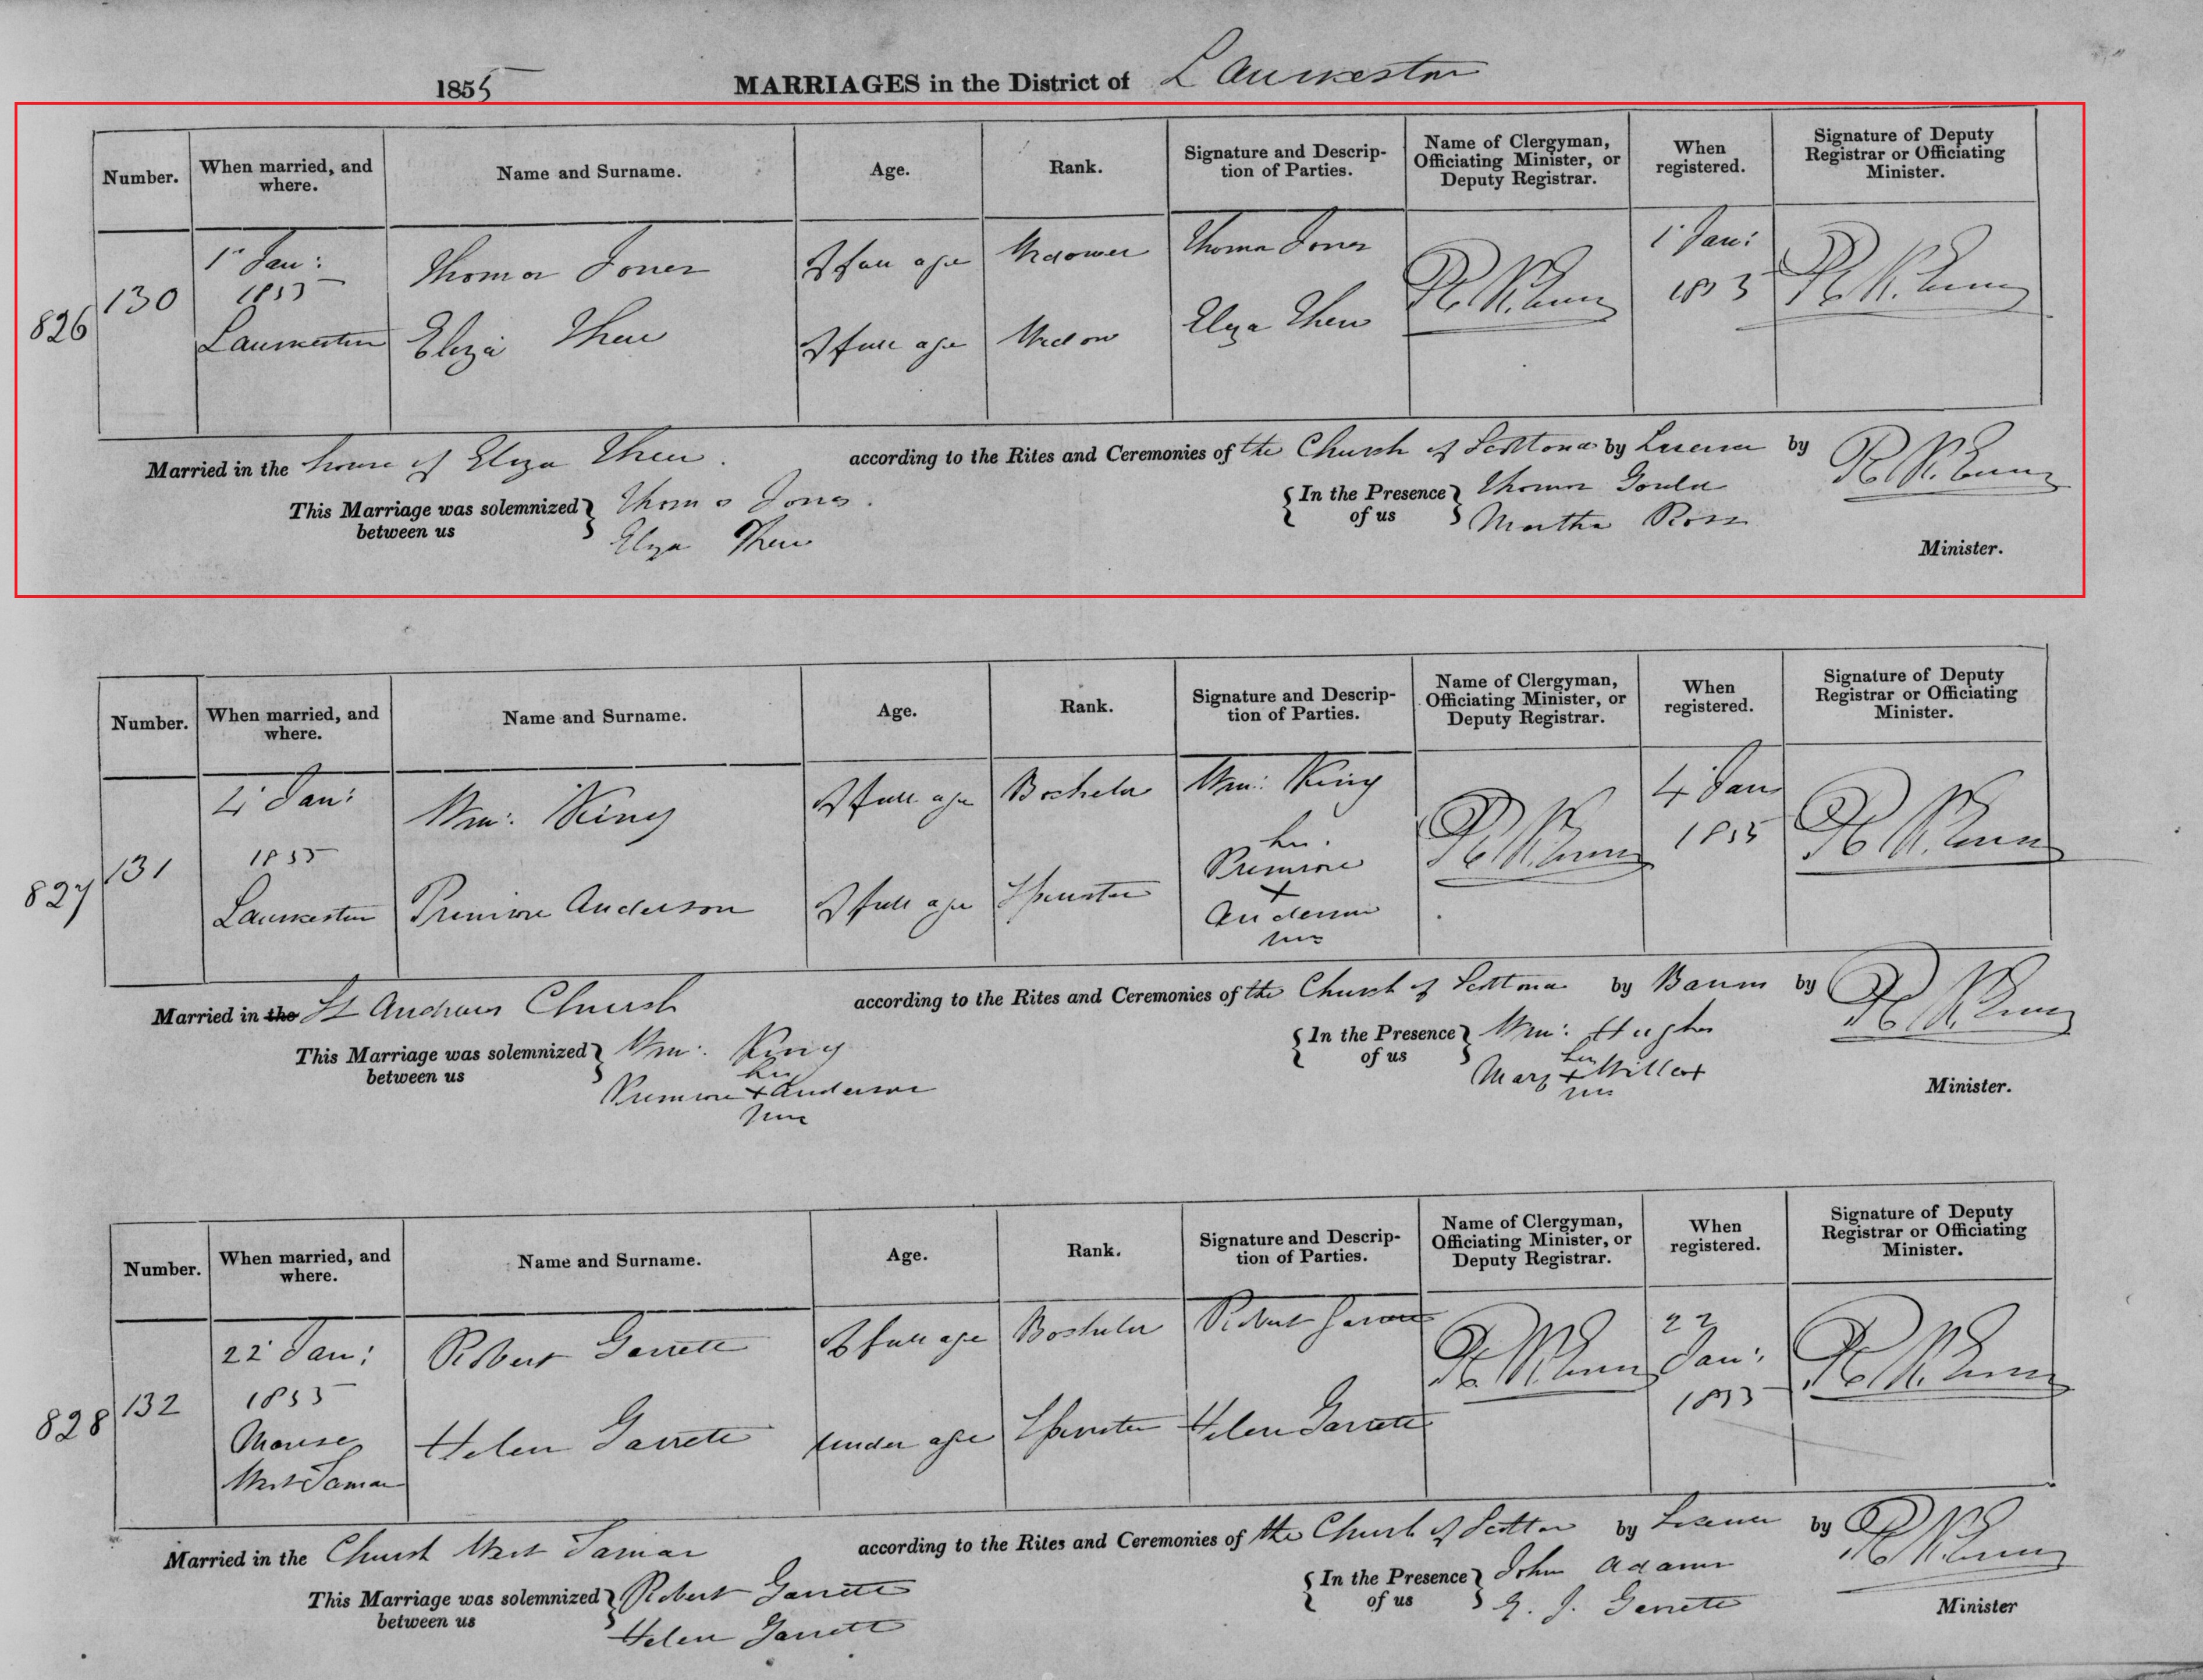 1855 MARRIAGES in the District of Launceston
Number. When married, and where. Name and Surname. Age. Rank. Signature and Description of Parties. Name of Clergyman, Officiating Minister, or Deputy Registrar. When registered. Signature of Deputy Registrar or Officiating Minister.
826 130
1 Jan: 1855 Launceston
Thomas Jones Of full age Widower Thomas Jones
Eliza Thew Of full age Widow Eliza Thew
1 Jan: 1855
Married in the house of Eliza Thew. according to the Rites and Ceremonies of the Church of Scotland by License by
This Marriage was solemnized between us Thomas Jones. Eliza Thew
In the Presence of us Thomas Gould Martha Ross
Minister.
Number. When married, and where. Name and Surname. Age. Rank. Signature and Description of Parties. Name of Clergyman, Officiating Minister, or Deputy Registrar. When registered. Signature of Deputy Registrar or Officiating Minister.
827 131
4 Jan: 1855 Launceston
Wm: King Of full age Bachelor Wm: King
Primrose Anderson Of full age Spinster her Primrose X Anderson
4 Jan 1855
Married in the St Andrews Church according to the Rites and Ceremonies of the Church of Scotland by Banns by
This Marriage was solemnized between us Wm: King Primrose her X Anderson
In the Presence of us Wm: Hughes Mary her X
Minister.
Number. When married, and where. Name and Surname. Age. Rank. Signature and Description of Parties. Name of Clergyman, Officiating Minister, or Deputy Registrar. When registered. Signature of Deputy Registrar or Officiating Minister.
828 132
22 Jan: 1855 Manse West Tamar
Robert Garrett Of full age Bachelor Robert Garrett
Helen Garrett under age Spinster Helen Garrett
22 Jan: 1855
Married in the Church West Tamar according to the Rites and Ceremonies of the Church of Scotland by License by
This Marriage was solemnized between us Robert Garrett Helen Garrett
In the Presence of us John Adams J. Garrett
Minister